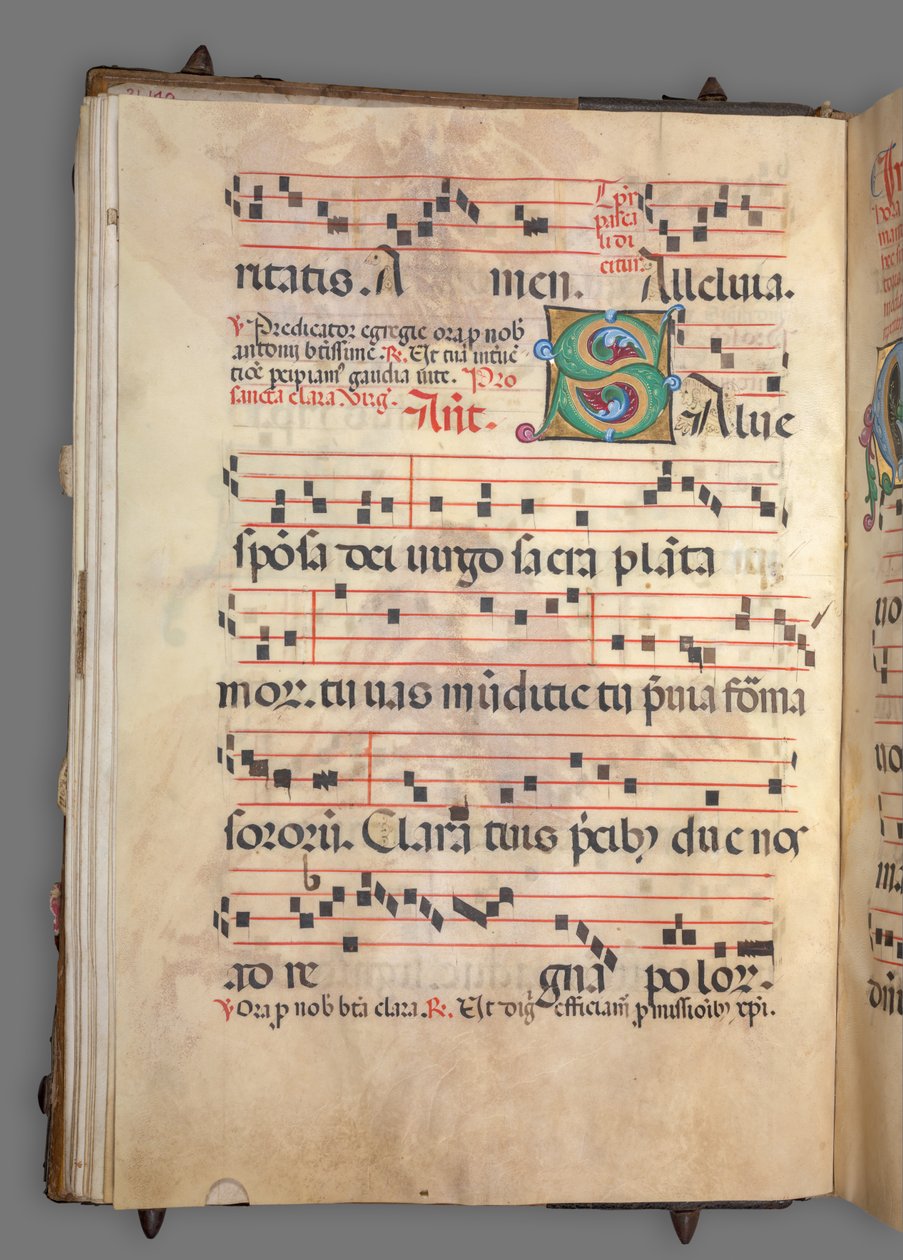 ritatis. Amen. Alleluia.
T pr
pasca
li di
citur.
℣ Predicator egregie ora p nob
antonij btissime. ℟. Et tua interue
tioe pcipiam gaudia uite. Pro
sancta clara Virg. Ant. SAlue
spōsa dei uirgo sacra plāta
b
mor. tu uas mūditie tu p̄uia fōma
sororū. Clara tuis p̄cibꝯ duc nos
ad regna polor.
℣ Ora p nob bta clara. ℟. Et dig efficiam pmissioibꝯ xp̄i.